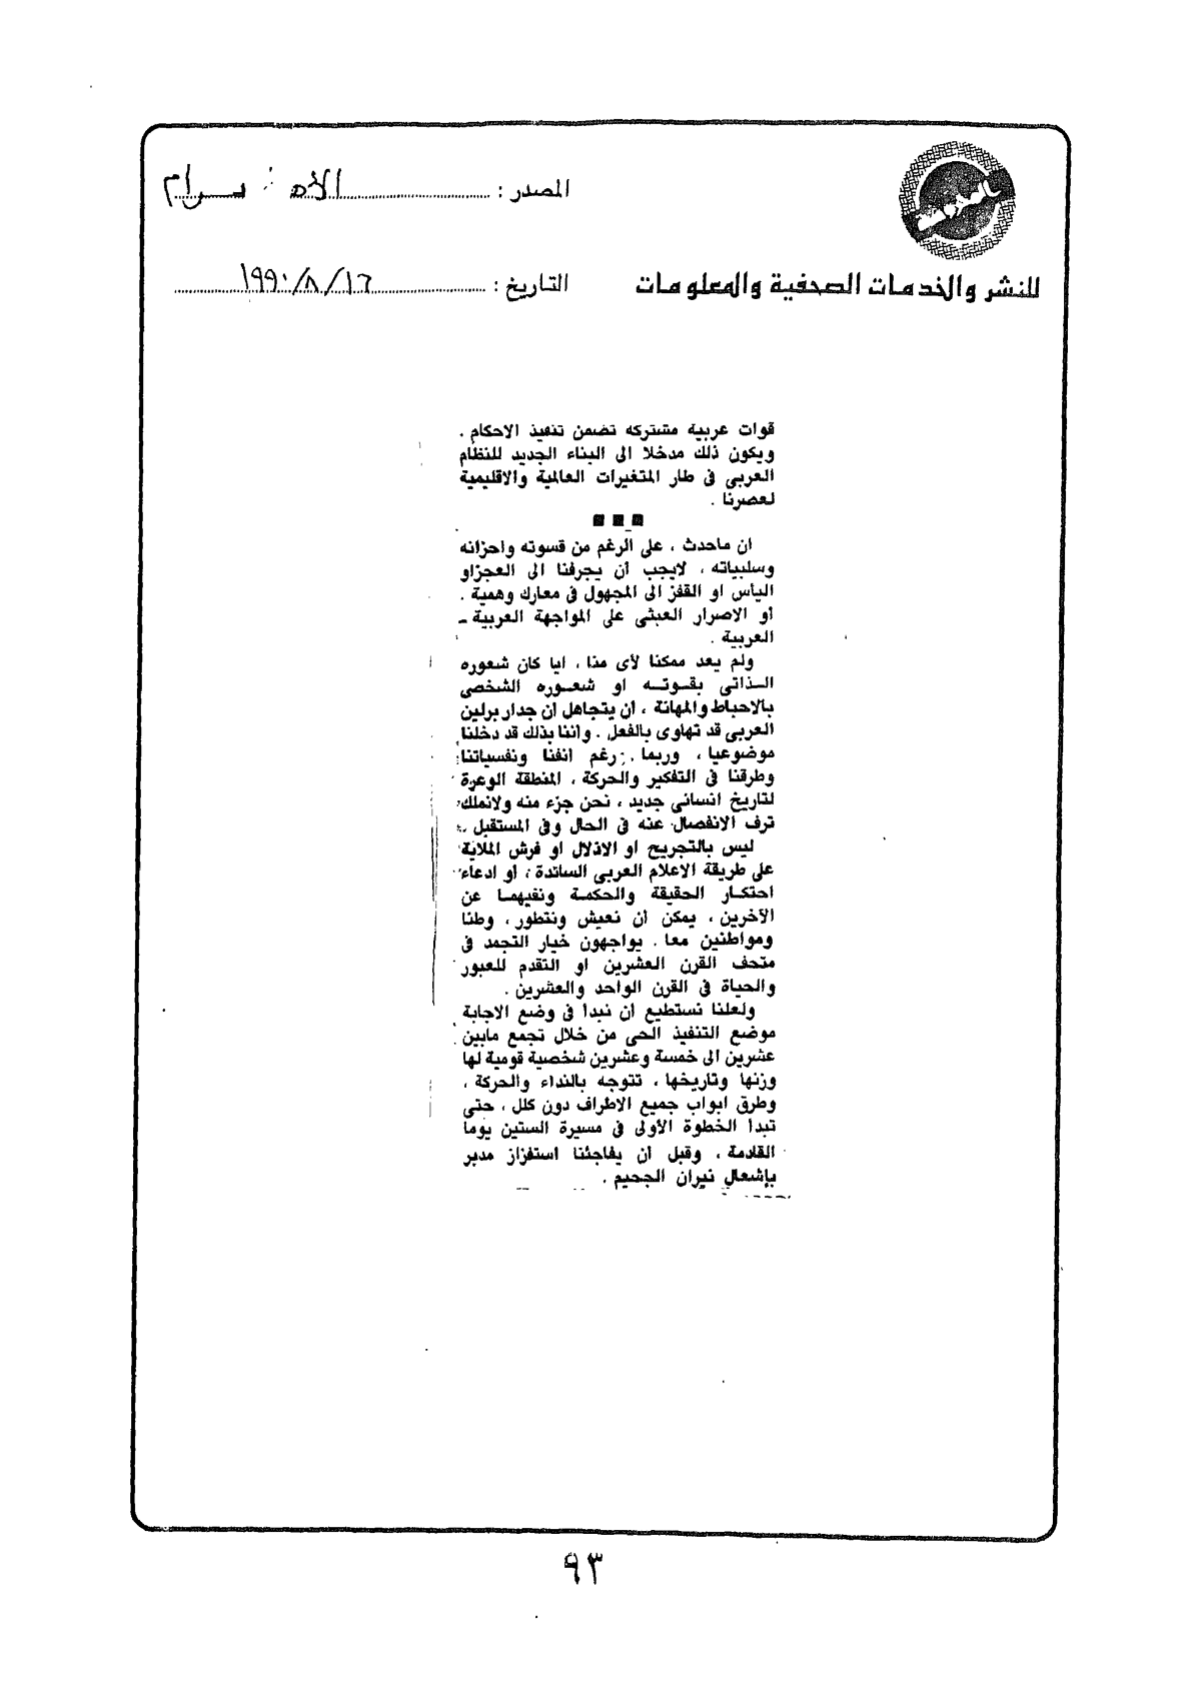 المصدر : الاهرام
للنشر والخدمات الصحفية والمعلومات
التاريخ : ١٩٩٠/٨/١٦
قوات عربية مشتركه تضمن تنفيذ الاحكام .
ويكون ذلك مدخلا الى البناء الجديد للنظام
العربى فى طار المتغيرات العالمية والاقليمية
لعصرنا .
■ ■ ■
ان ماحدث ، على الرغم من قسوته واحزانه
وسلبياته ، لايجب أن يجرفنا الى العجزاو
اليأس او القفز الى المجهول فى معارك وهمية .
أو الاصرار العبثى على المواجهة العربية ـ
العربية .
ولم يعد ممكنا لأى منا ، ايا كان شعوره
الـذاتى بقـوتـه او شعـوره الشخصى
بالاحباط والمهانة ، ان يتجاهل ان جدار برلين
العربى قد تهاوى بالفعل . واننا بذلك قد دخلنا
موضوعيا ، وربما . رغم انفنا ونفسياتنا
وطرقنا فى التفكير والحركة ، المنطقة الوعرة
لتاريخ انسانى جديد ، نحن جزء منه ولانملك
ترف الانفصال عنه فى الحال وفى المستقبل .
ليس بالتجريح او الاذلال او فرش الملاية
على طريقة الاعلام العربى السائدة ، أو ادعاء
احتكـار الحقيقة والحكمـة ونفيهمـا عن
الآخرين ، يمكن ان نعيش ونتطور ، وطنا
ومواطنين معا . يواجهون خيار التجمد فى
متحف القرن العشرين او التقدم للعبور
والحياة فى القرن الواحد والعشرين .
ولعلنا نستطيع ان نبدأ فى وضع الاجابة
موضع التنفيذ الحى من خلال تجمع مابين
عشرين الى خمسة وعشرين شخصية قومية لها
وزنها وتاريخها ، تتوجه بالنداء والحركة ،
وطرق ابواب جميع الاطراف دون كلل ، حتى
تبدأ الخطوة الأولى فى مسيرة الستين يوما
القادمة ، وقبل ان يفاجئنا استفزاز مدبر
بإشعال نيران الجحيم .
٩٣